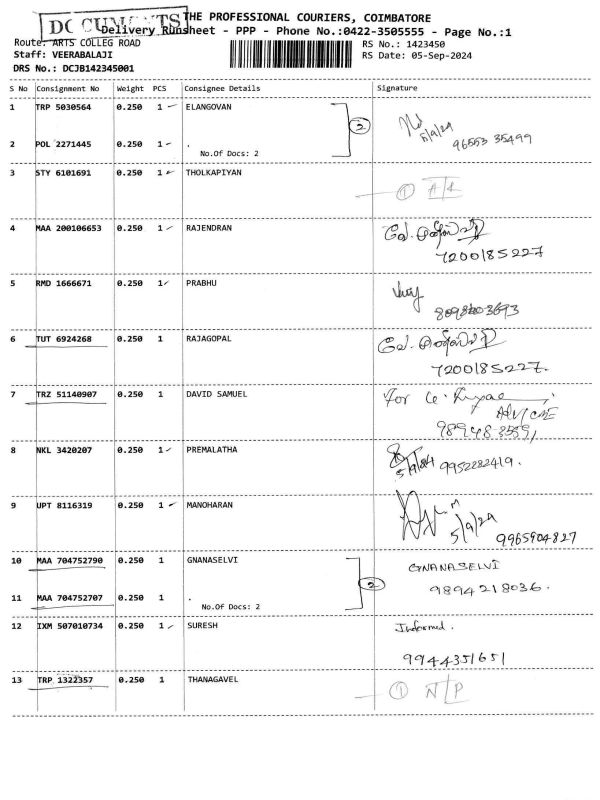 DOCUMENTS
THE PROFESSIONAL COURIERS, COIMBATORE
Delivery Runsheet - PPP - Phone No.:0422-3505555 - Page No.:1
Route: ARTS COLLEG ROAD
RS No.: 1423450
Staff: VEERABALAJI
RS Date: 05-Sep-2024
DRS No.: DCJB142345001
S No Consignment No Weight PCS Consignee Details Signature
1 TRP 5030564 0.250 1 ELANGOVAN
2
5/9/24
2 POL 2271445 0.250 1 .
96553 35499
No.Of Docs: 2
3 STY 6101691 0.250 1 THOLKAPIYAN
1 A/L
4 MAA 200106653 0.250 1 RAJENDRAN
7200185227
5 RMD 1666671 0.250 1 PRABHU
6 TUT 6924268 0.250 1 RAJAGOPAL
7200185227.
7 TRZ 51140907 0.250 1 DAVID SAMUEL
For
8 NKL 3420207 0.250 1 PREMALATHA
5/9/24 9952282419.
9 UPT 8116319 0.250 1 MANOHARAN
5/9/24
9965904827
10 MAA 704752790 0.250 1 GNANASELVI
GNANASELVI
2
9894218036.
11 MAA 704752707 0.250 1 .
No.Of Docs: 2
12 IXM 507010734 0.250 1 SURESH
Informed.
9944351651
13 TRP 1322357 0.250 1 THANAGAVEL
1 N/P